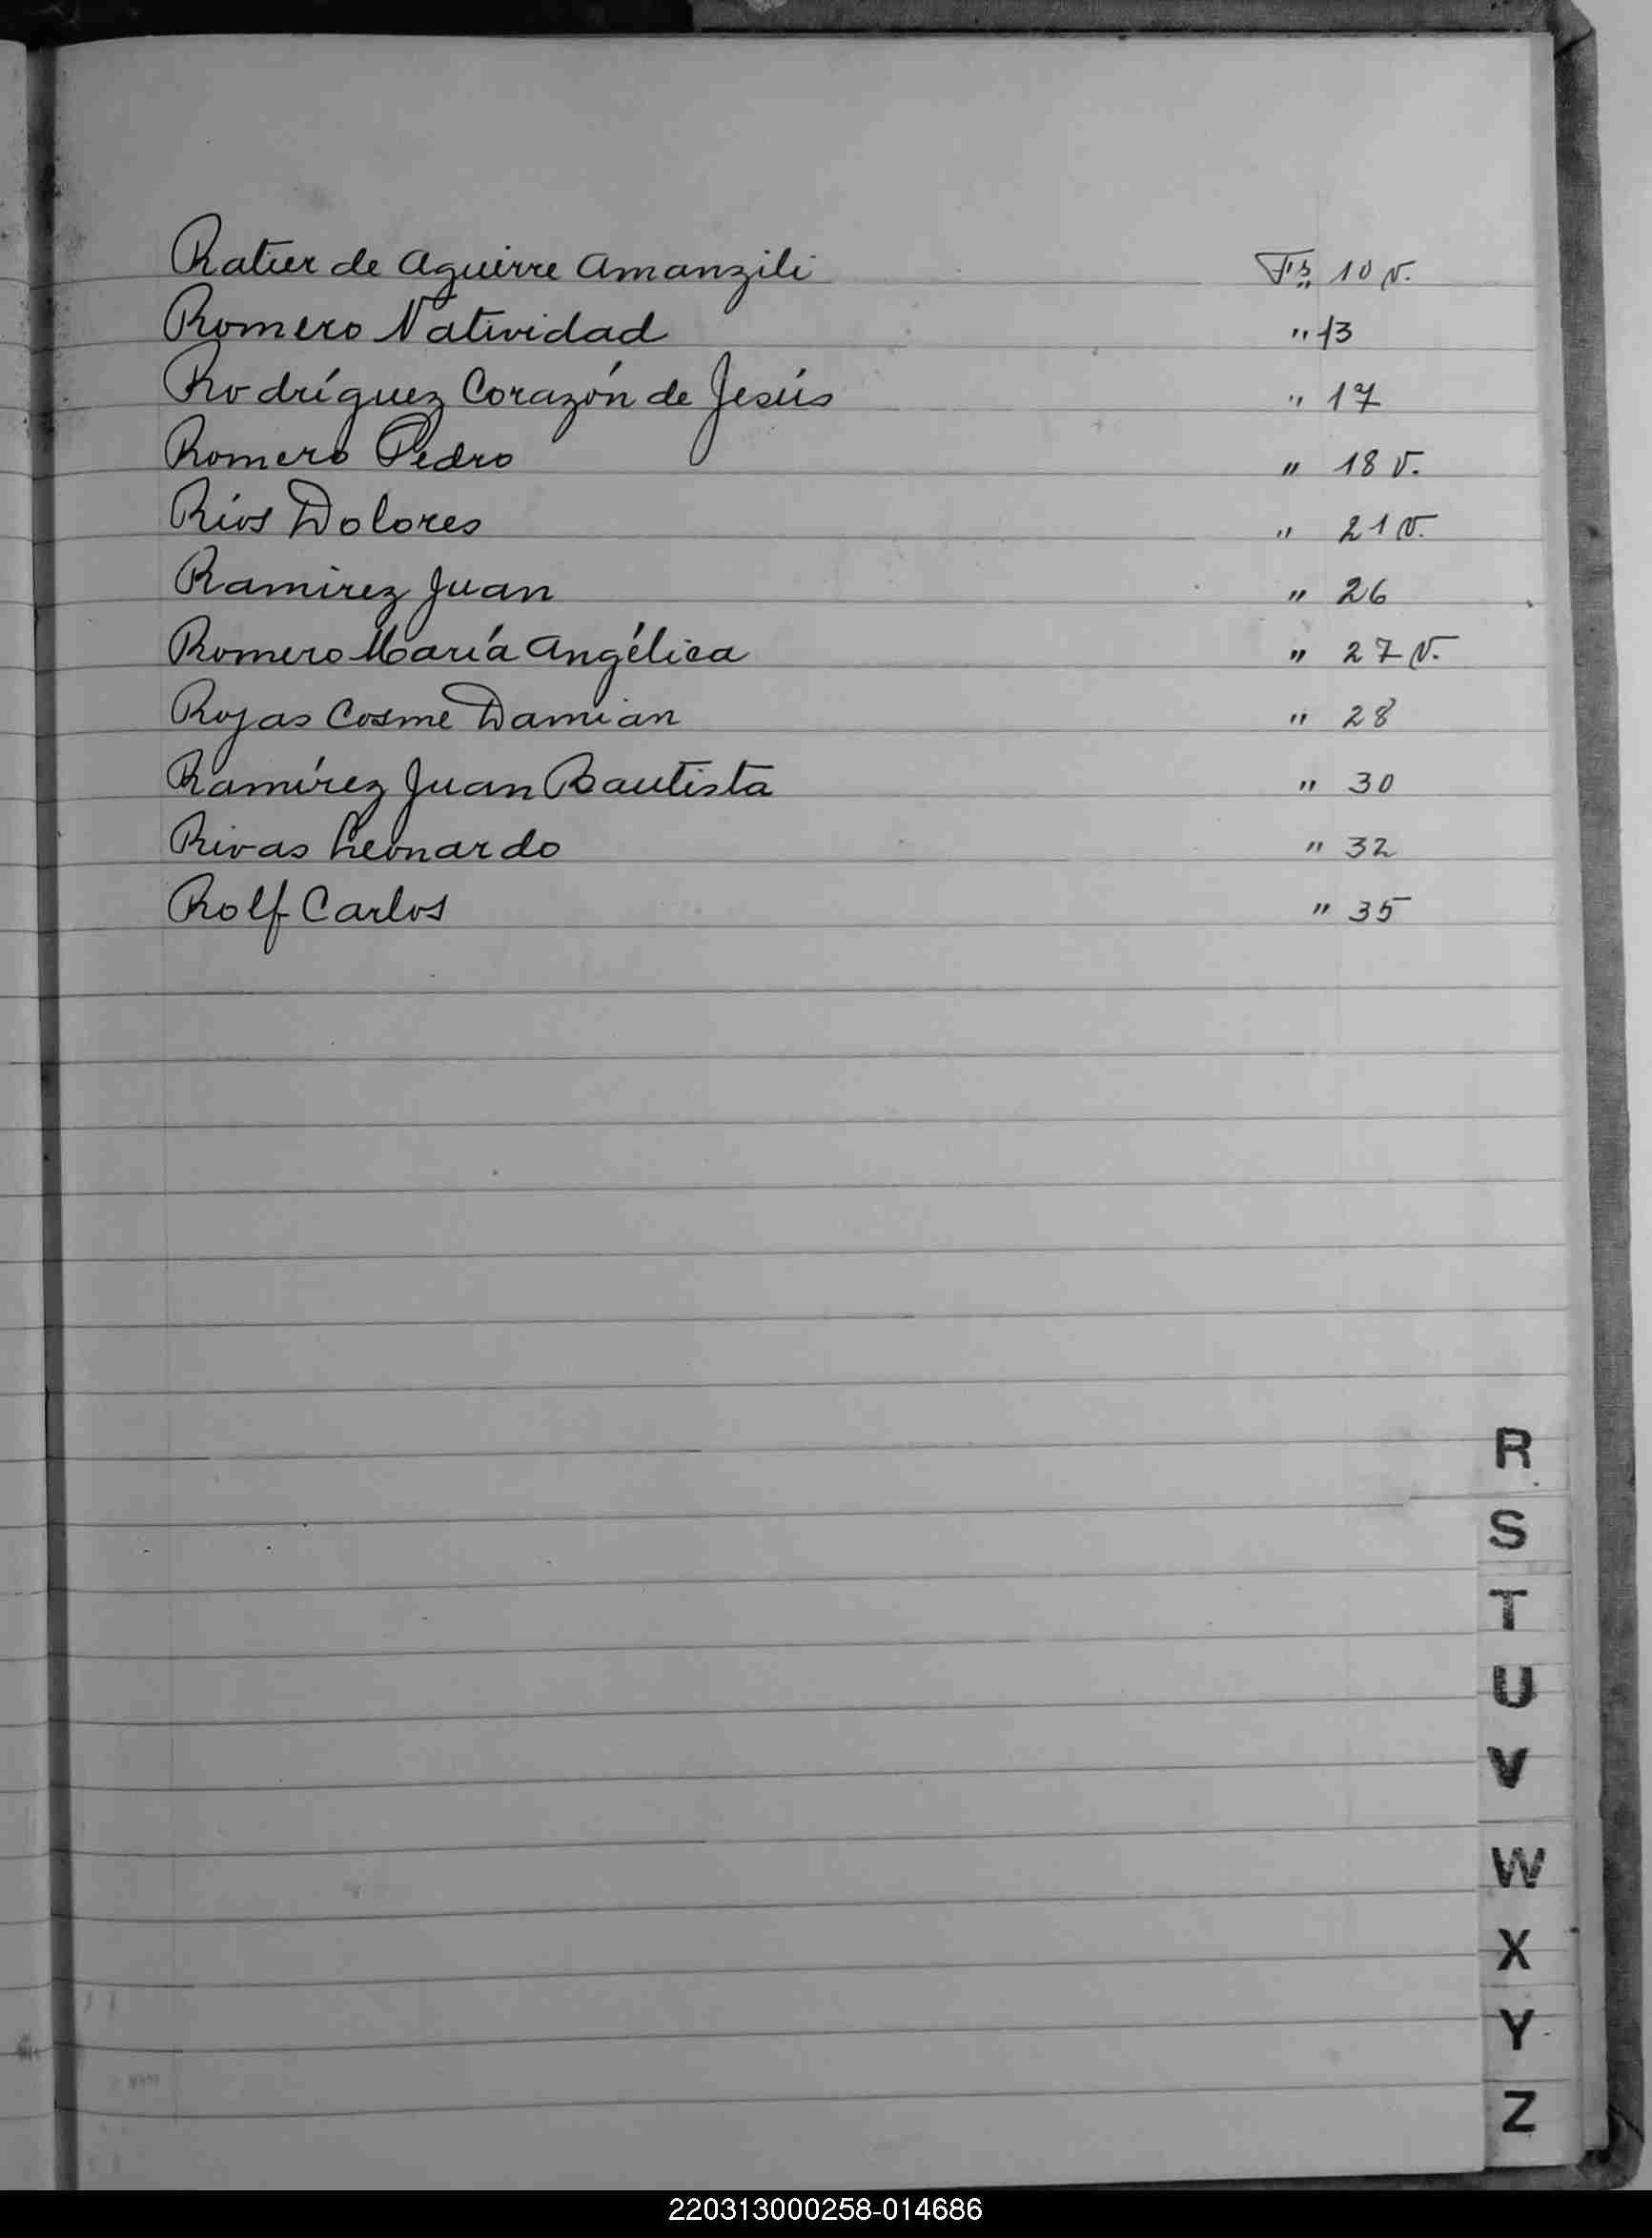 Ratier de Aguirre Amanzili Fs. 10 v.
Romero Natividad " 13
Rodríguez Corazón de Jesús " 17
Romero Pedro " 18 v.
Ríos Dolores " 21 v.
Ramirez Juan " 26
Romero María Angélica " 27 v.
Rojas Cosme Damian " 28
Ramírez Juan Bautista " 30
Rivas Leonardo " 32
Rolf Carlos " 35
R
S
T
U
V
W
X
Y
Z
220313000258-014686